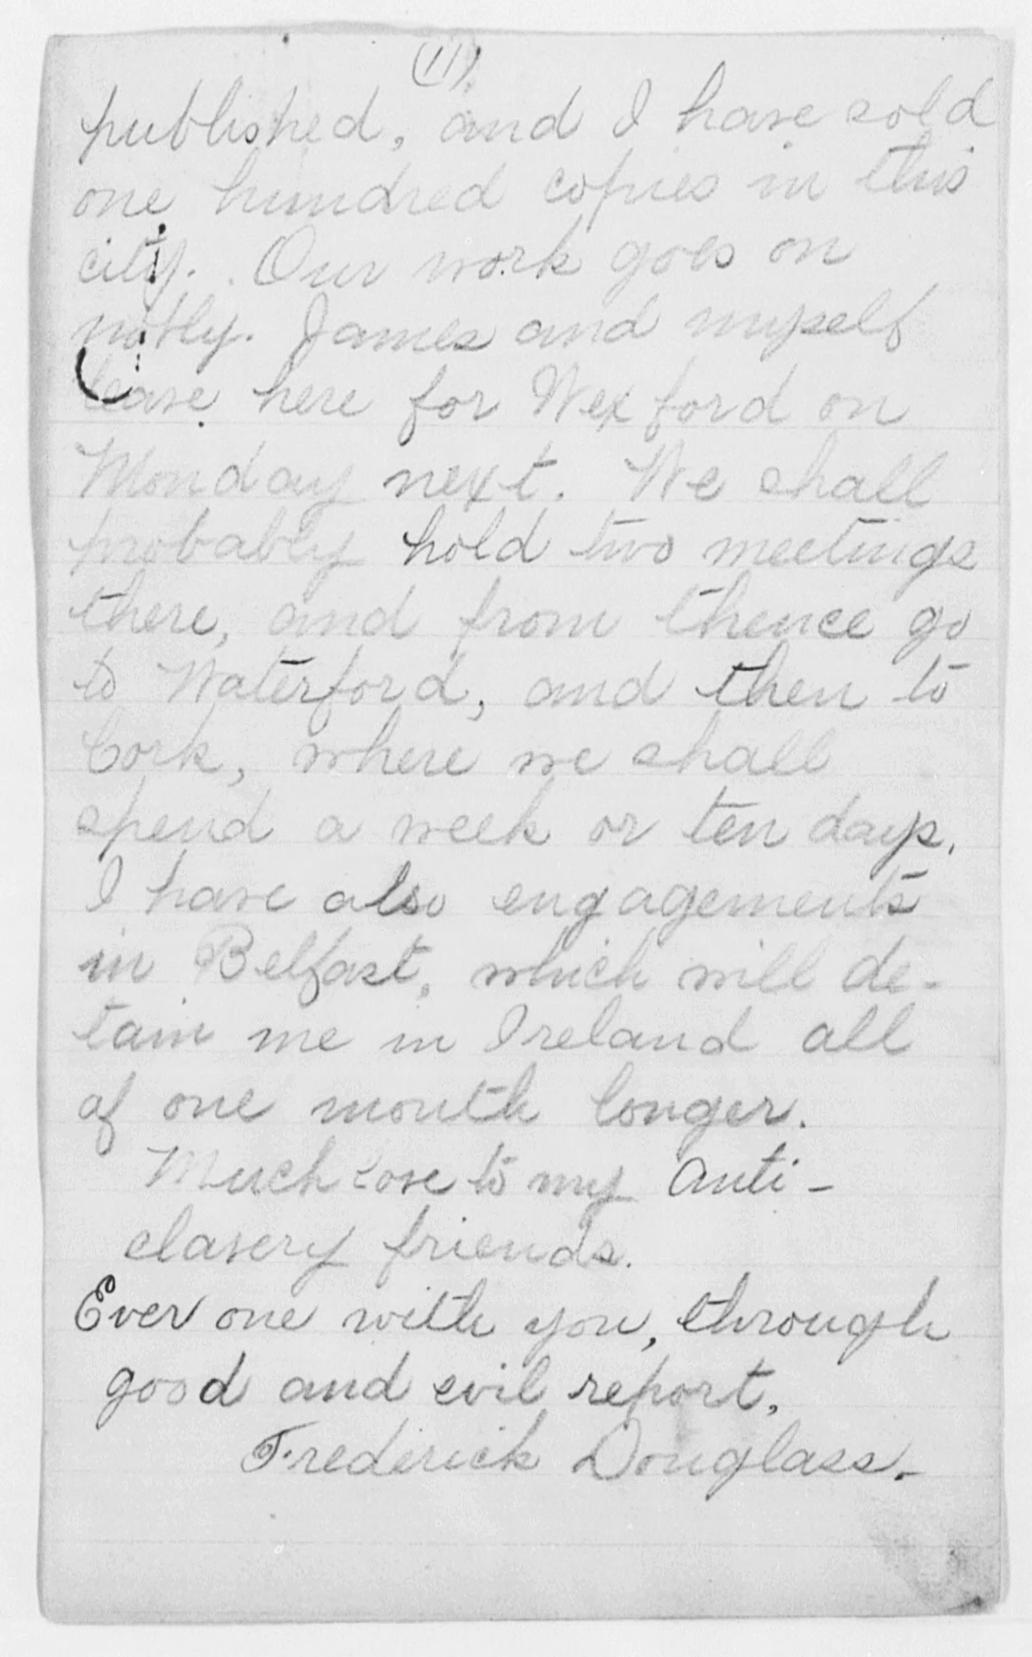 (11)
published, and I have sold
one hundred copies in this
city. Our work goes on
nobly. James and myself
leave here for Wexford on
Monday next. We shall
probably hold two meetings
there, and from thence go
to Waterford, and then to
Cork, where we shall
spend a week or ten days.
I have also engagements
in Belfast, which will de-
tain me in Ireland all
of one month longer.
Much love to my anti-
slavery friends.
Ever one with you, through
good and evil report,
Frederick Douglass.